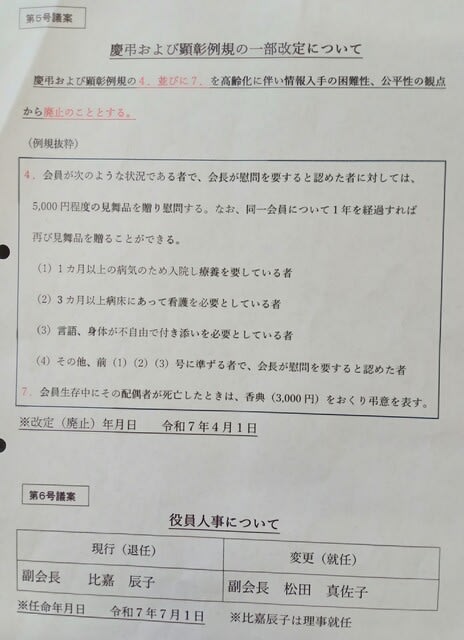 第5号議案
慶弔および顕彰例規の一部改定について
慶弔および顕彰例規の4．並びに7．を高齢化に伴い情報入手の困難性、公平性の観点
から廃止のこととする。
（例規抜粋）
4．会員が次のような状況である者で、会長が慰問を要すると認めた者に対しては、
5,000円程度の見舞品を贈り慰問する。なお、同一会員について１年を経過すれば
再び見舞品を贈ることができる。
（1）１カ月以上の病気のため入院し療養を要している者
（2）３カ月以上病床にあって看護を必要としている者
（3）言語、身体が不自由で付き添いを必要としている者
（4）その他、前（1）（2）（3）号に準ずる者で、会長が慰問を要すると認めた者
7．会員生存中にその配偶者が死亡したときは、香典（3,000円）をおくり弔意を表す。
※改定（廃止）年月日　令和７年４月１日
第6号議案
役員人事について
現行（退任）　変更（就任）
副会長　比嘉　辰子　副会長　松田　真佐子
※任命年月日　令和７年７月１日　※比嘉辰子は理事就任